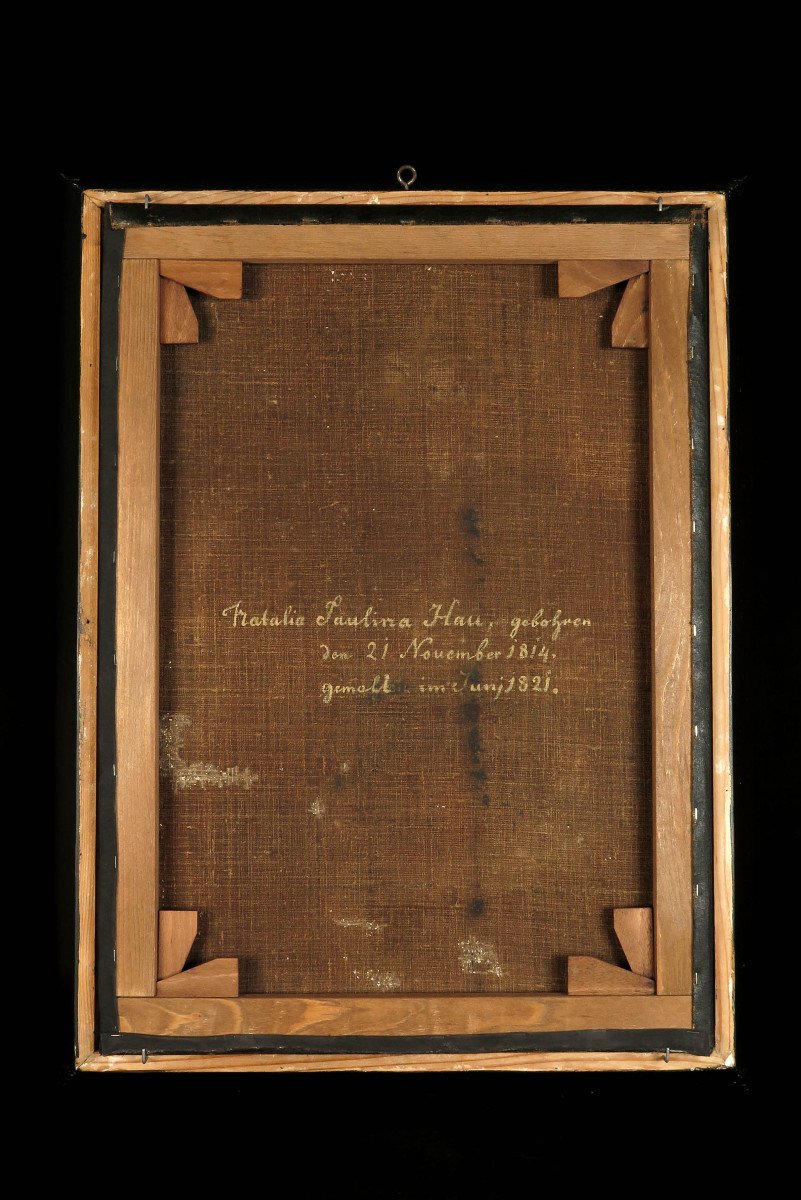 Natalia Paulina Hau, gebohren
den 21 November 1814.
gemalt im Junj 1821.